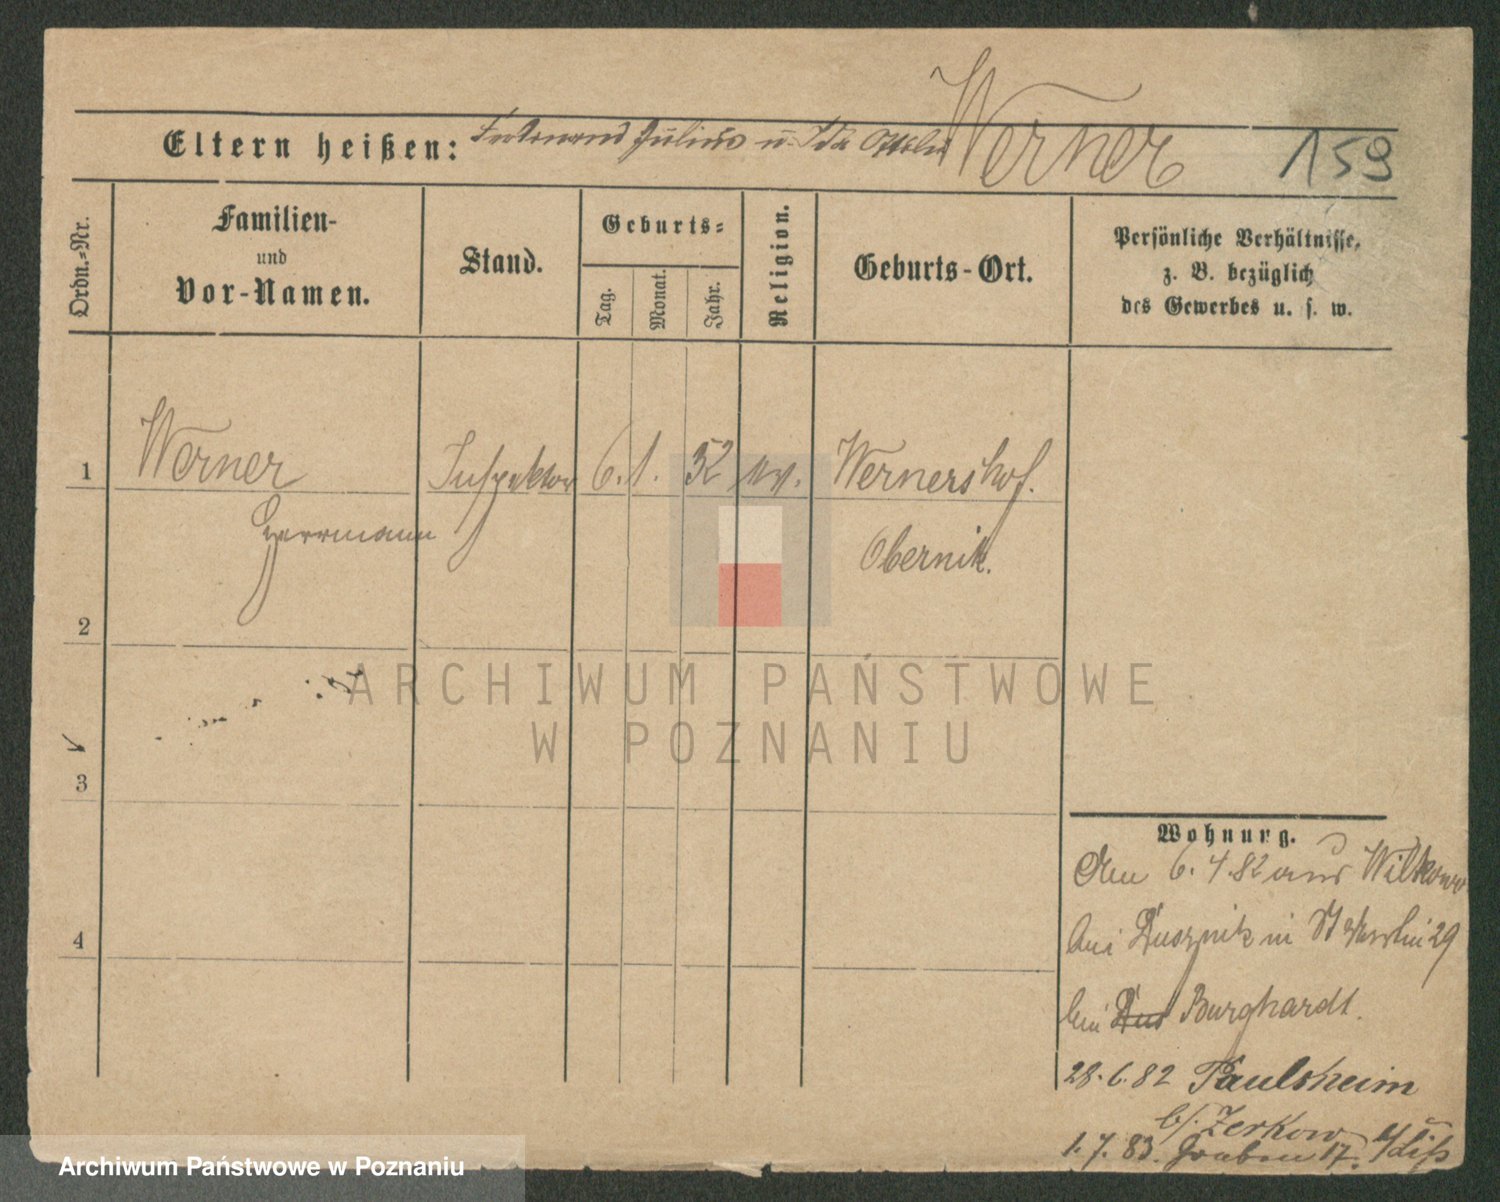 Werner
159
Eltern heißen: Ferdinand Julius u. Ida Ottilie
Ordn.-Nr.
Familien-
und
Vor-Namen.
Stand.
Geburts-
Tag.
Monat.
Jahr.
Religion.
Geburts-Ort.
Persönliche Verhältnisse,
z. B. bezüglich
des Gewerbes u. s. w.
1
Werner Inspektor 6. 1. 52 ev. Wernershof.
Herrmann Obernik.
2
3
4
Wohnung.
Den 6. 4. 82 aus Wilkowo
bei Dusznik in St Martin 29
bei Dus Burghardt.
28. 6. 82 Paulsheim
b/. Zerkow
1. 7. 83. Graben 17.
ARCHIWUM PAŃSTWOWE
W POZNANIU
Archiwum Państwowe w Poznaniu